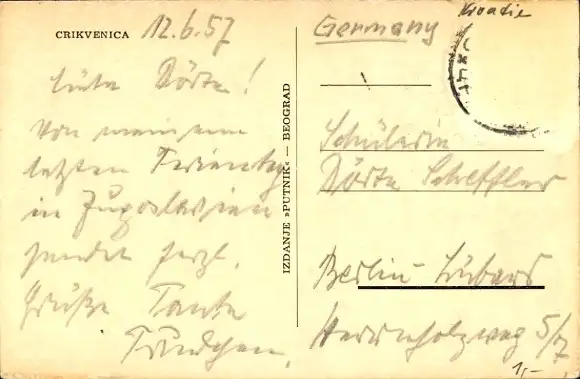 CRIKVENICA 12.6.57
Liebe Dörte!
Von meinem
letzten Ferientag
in Jugoslavien
sendet herzl.
Grüße Tante
Trudchen.
IZDANJE »PUTNIK« — BEOGRAD
Kroatie
Germany
Schülerin
Dörte Scheffler
Berlin-Lübars
Herrnholzweg 5/7
1,-